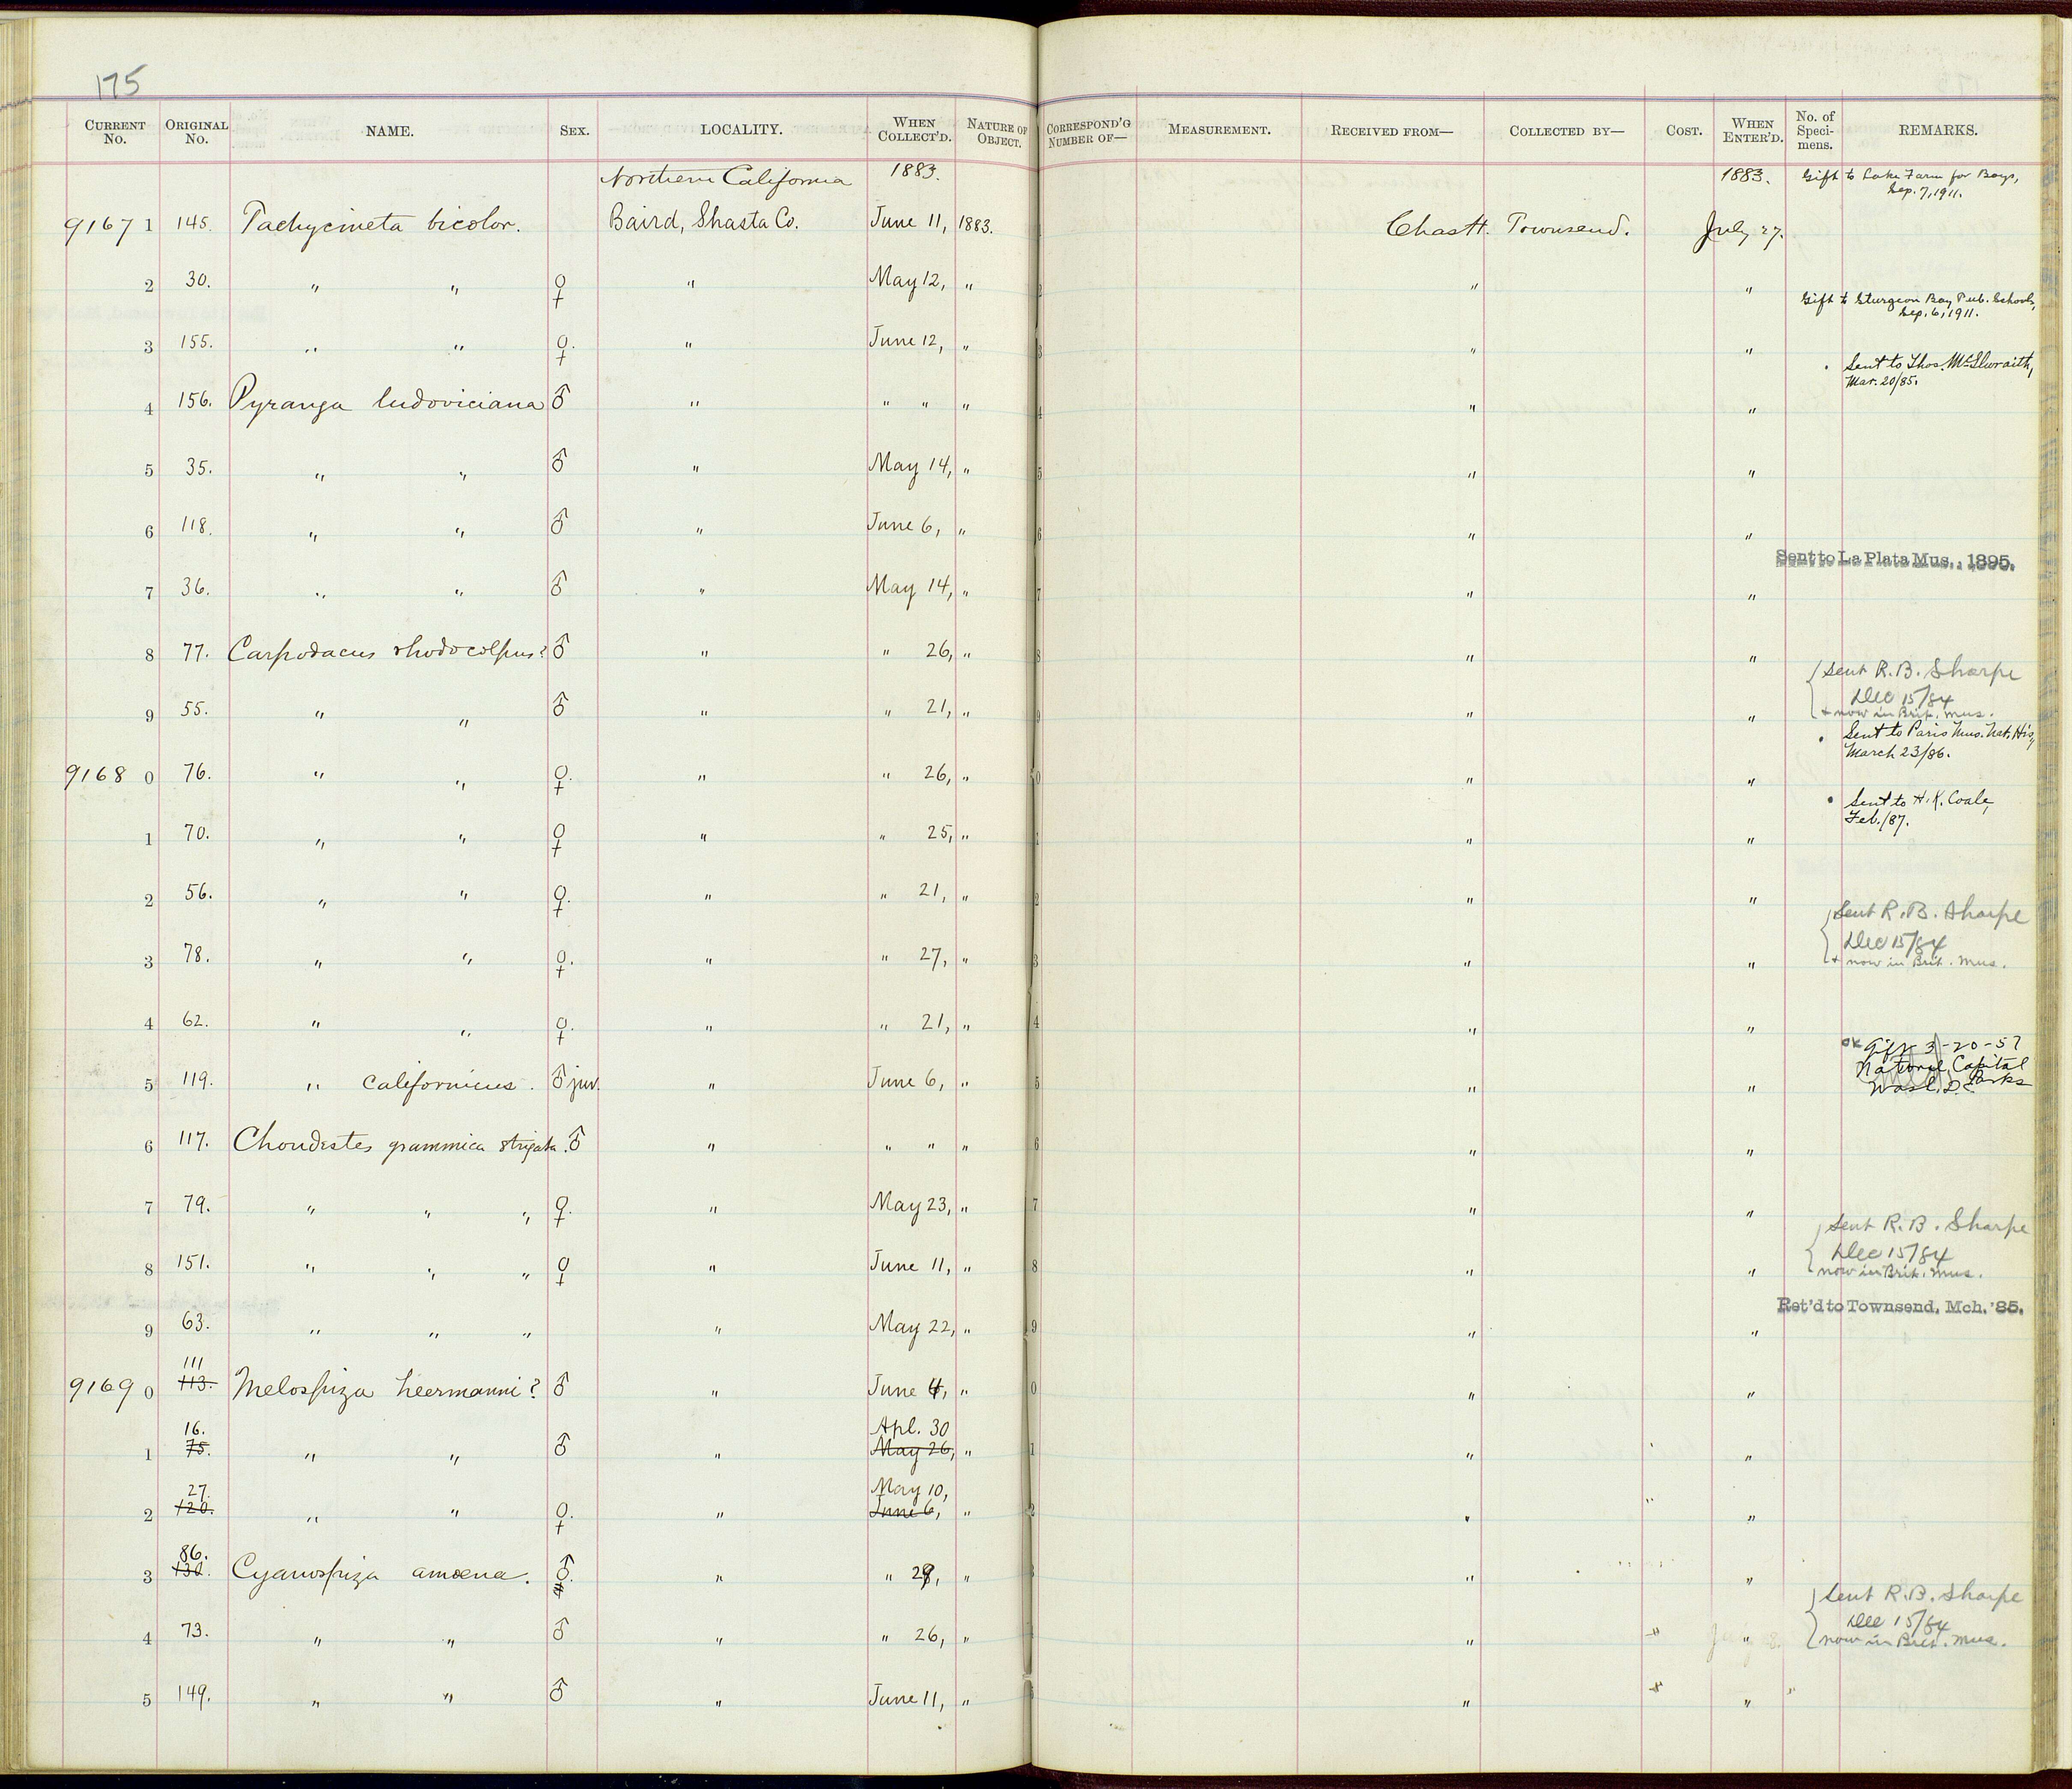 175
CURRENT No. ORIGINAL No. NAME. SEX. LOCALITY. WHEN COLLECT'D. NATURE OF OBJECT. CORRESPOND'G NUMBER OF— MEASUREMENT. RECEIVED FROM— COLLECTED BY— COST. WHEN ENTER'D. No. of Speci-mens. REMARKS.
Northern California 1883. 1883. Gift to Lake Farm for Boys,
Sep. 7, 1911.
9167 1 145. Tachycineta bicolor. Baird, Shasta Co. June 11, 1883. Chas H. Townsend. July 27.
2 30. " " ♀ " May 12, " 2 " "
Gift to Sturgeon Bay Pub. Schools,
Sep. 6, 1911.
3 155. " " ♀. " June 12, " 3 " "
Sent to Thos. McIlwraith,
Mar. 20/85.
4 156. Pyranga ludoviciana ♂ " " " " 4 " "
5 35. " " ♂ " May 14, " 5 " "
6 118. " " ♂ " June 6, " 6 " "
Sent to La Plata Mus., 1895.
7 36. " " ♂ " May 14, " 7 " "
8 77. Carpodacus rhodocolpus? ♂ " " 26, " 8 " "
Sent R. B. Sharpe
Dec 15/84
+ now in Brit. Mus.
9 55. " " ♂ " " 21, " 9 " "
Sent to Paris Mus. Nat. His,
March 23/86.
9168 0 76. " " ♀. " " 26, " 0 " "
Sent to H. K. Coale,
Feb./87.
1 70. " " ♀ " " 25, " 1 " "
2 56. " " ♀. " " 21, " 2 " "
Sent R. B. Sharpe
Dec 15/84
+ now in Brit. Mus.
3 78. " " ♀. " " 27, " 3 " "
4 62. " " ♀. " " 21, " 4 " "
OK Gift 3-20-57
National Capital
Parks
Wash. D.C.
5 119. " californicus. ♂ juv. " June 6, " 5 " "
6 117. Chondestes grammica strigata. ♂ " " " " 6 " "
7 79. " " " ♀. " May 23, " 7 " "
Sent R. B. Sharpe
Dec 15/84
now in Brit. Mus.
8 151. " " " ♀ " June 11, " 8 " "
Ret'd to Townsend, Mch. '85.
9 63. " " " " May 22, " 9 " "
111
9169 0 113. Melospiza heermanni? ♂ " June 4, " 0 " "
16. Apl. 30
1 75. " " ♂ " May 26, " 1 " "
27. May 10,
2 120. " " ♀. " June 6, " 2 " "
86.
3 130. Cyanospiza amœna. ♂. " " 29, " " "
Sent R. B. Sharpe
Dec 15/84
now in Brit. Mus.
4 73. " " ♂ " " 26, " " "
5 149. " " ♂ " June 11, " " "